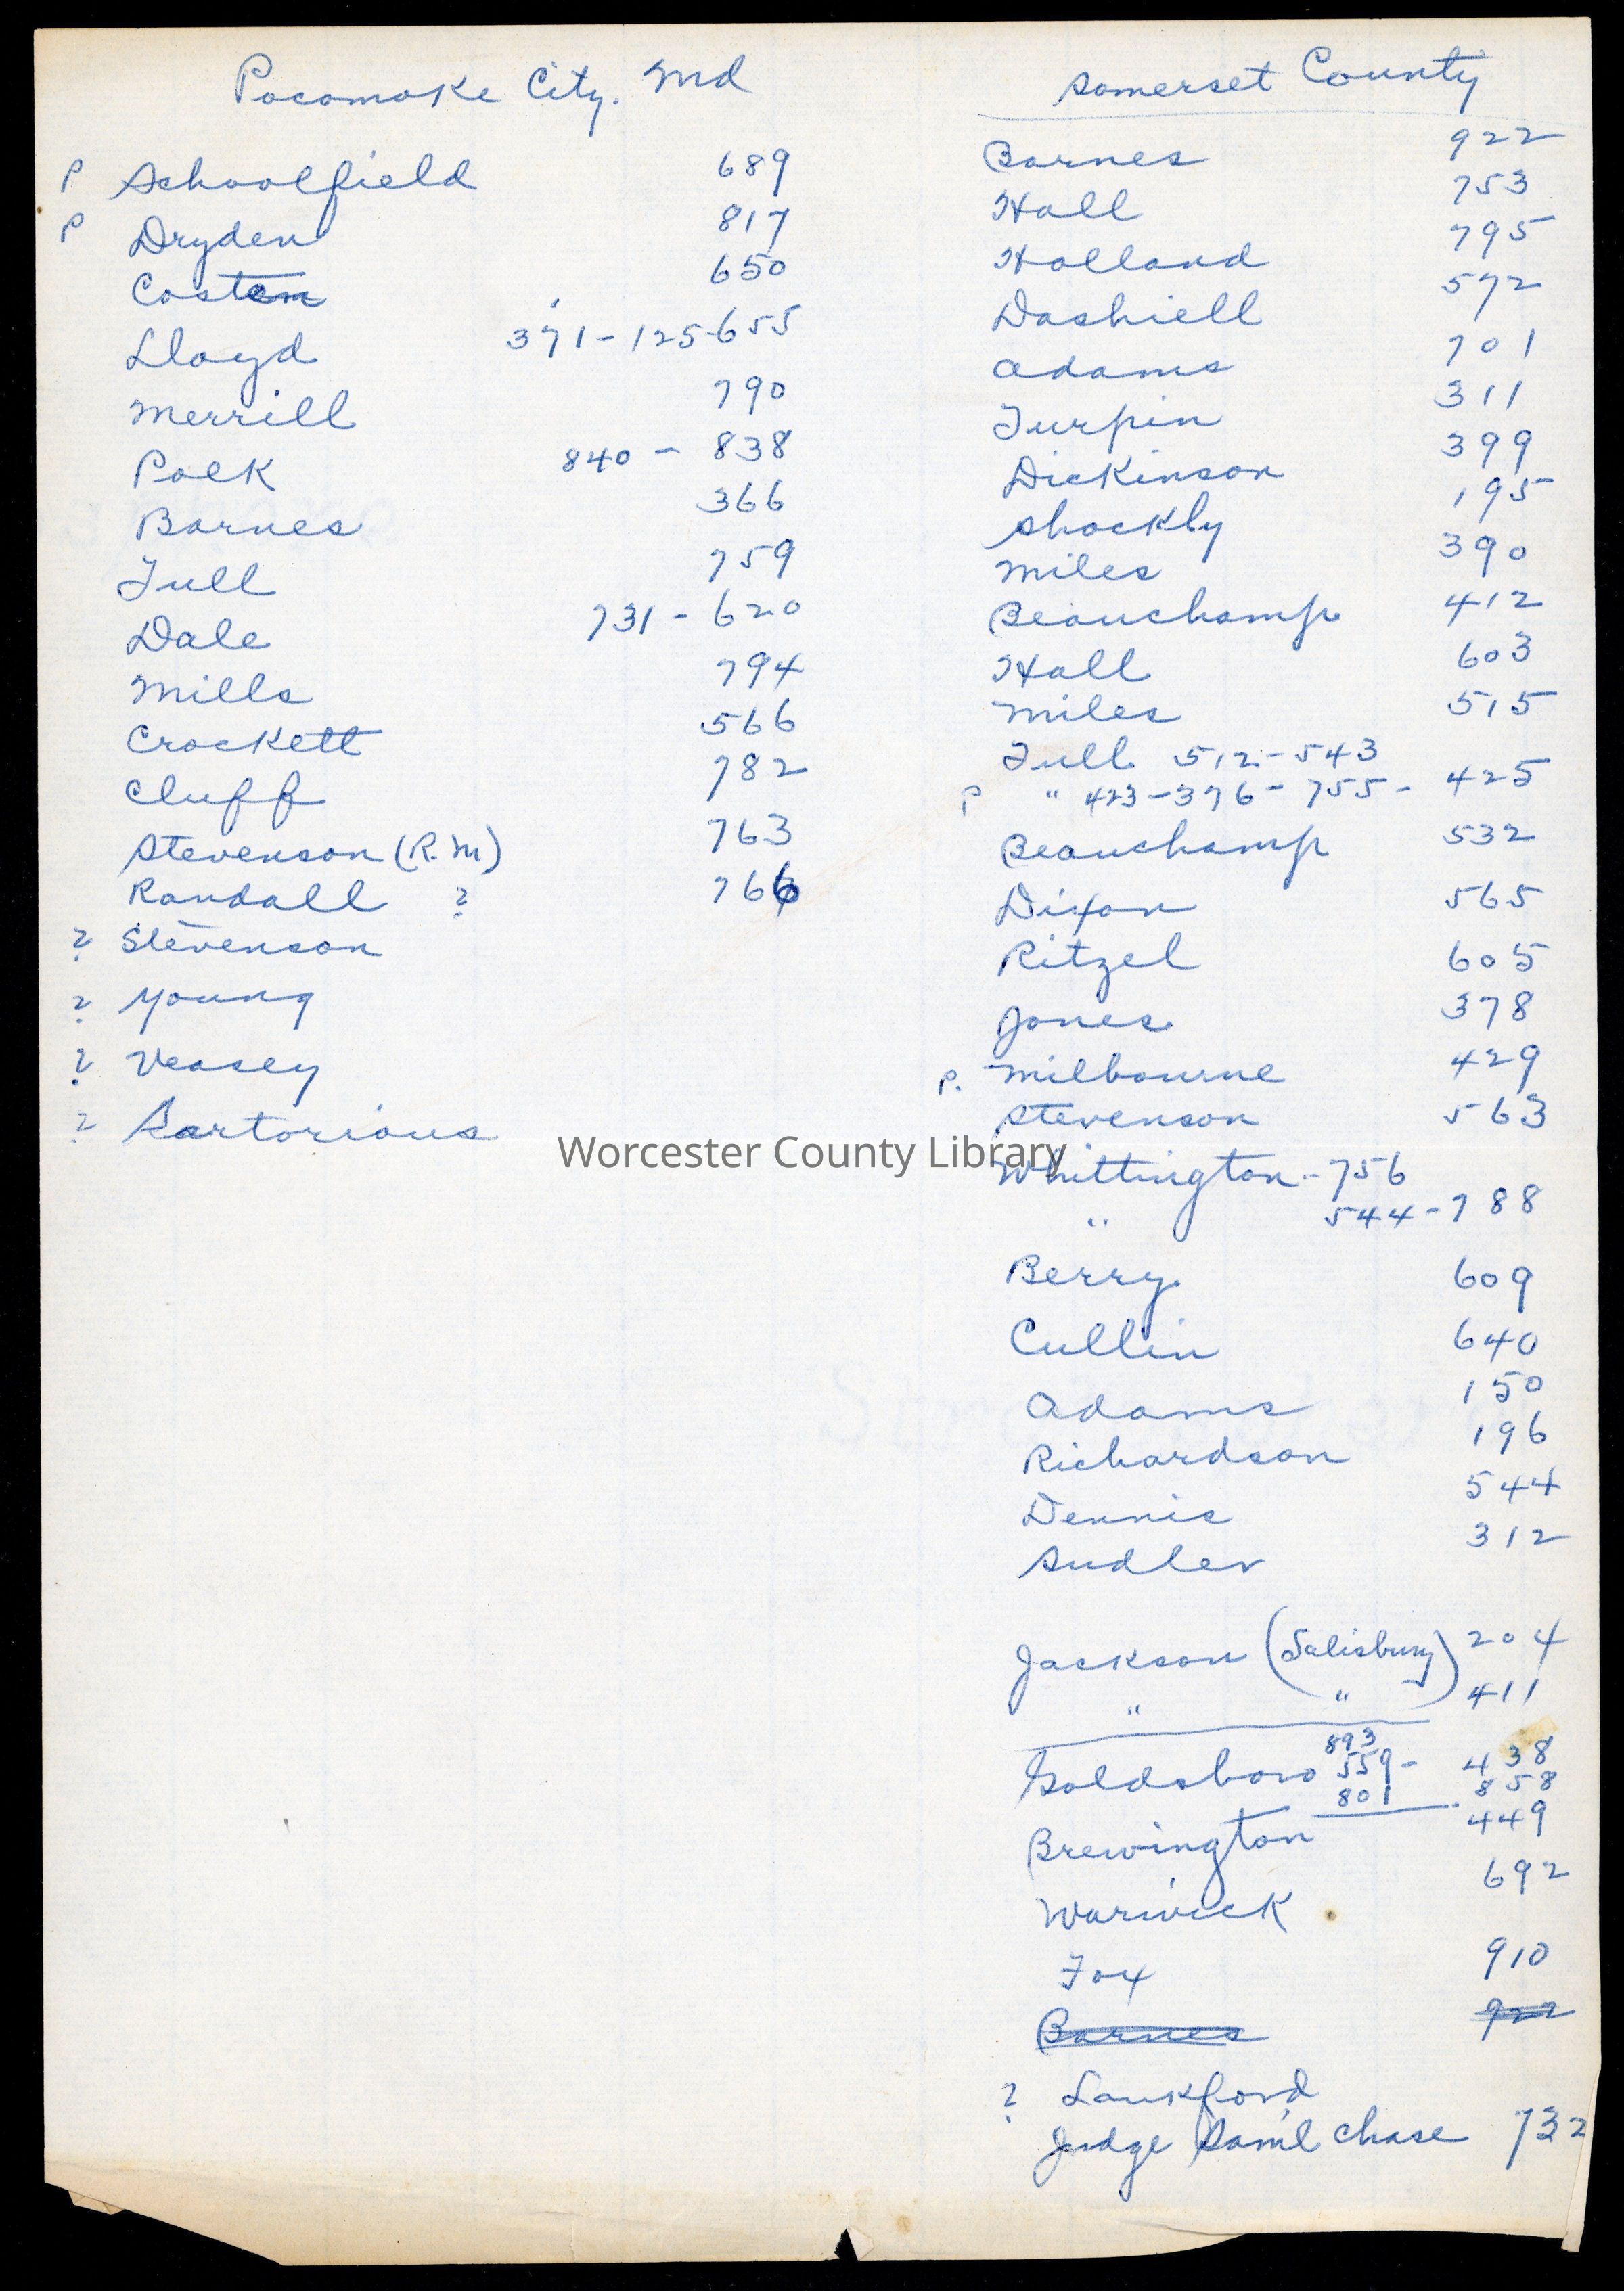 Pocomoke City. Md
P Schoolfield 689
P Dryden 817
Costen 650
Lloyd 371-125-655
Merrill 790
Polk 840 - 838
Barnes 366
Tull 759
Dale 731 - 620
Mills 794
Crockett 566
Cluff 782
Stevenson (R.M) 763
Randall ? 766
? Stevenson
? Young
? Veasey
? Sartorious
Somerset County
Barnes 922
Hall 753
Holland 795
Dashiell 572
Adams 701
Turpin 311
Dickinson 399
Shockly 195
Miles 390
Beauchamp 412
Hall 603
Miles 515
Tull 512-543
P " 423-376-755- 425
Beauchamp 532
Dixon 565
Ritzel 605
Jones 378
P. Milbourne 429
Stevenson 563
Whittington-756
" 544-788
Berry 609
Cullin 640
Adams 150
Richardson 196
Dennis 544
Sudler 312
Jackson (Salisbury) 204
" " 411
893
Goldsboro 559- 438
801 858
Brewington 449
Warwick 692
Fox 910
Barnes 922
? Lankford
Judge Sam'l Chase 732
Worcester County Library